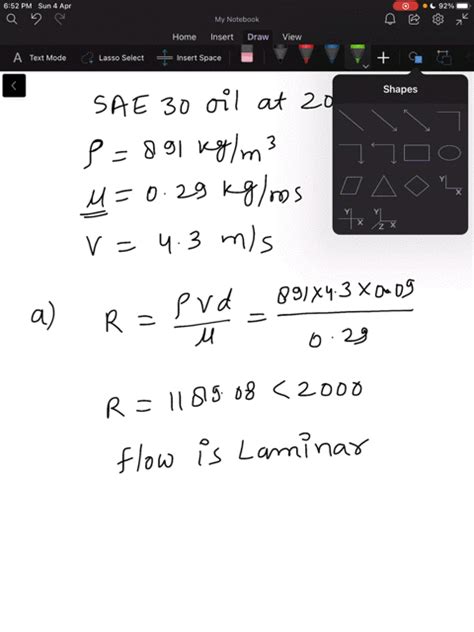 6:52 PM Sun 4 Apr 92%
My Notebook
Home Insert Draw View
A Text Mode Lasso Select Insert Space
Shapes
SAE 30 oil at 20
ρ = 891 kg/m³
μ = 0.29 kg/ms
V = 4.3 m/s
a) R = ρVd / μ = 891×4.3×0.09 / 0.29
R = 1189.08 < 2000
flow is Laminar